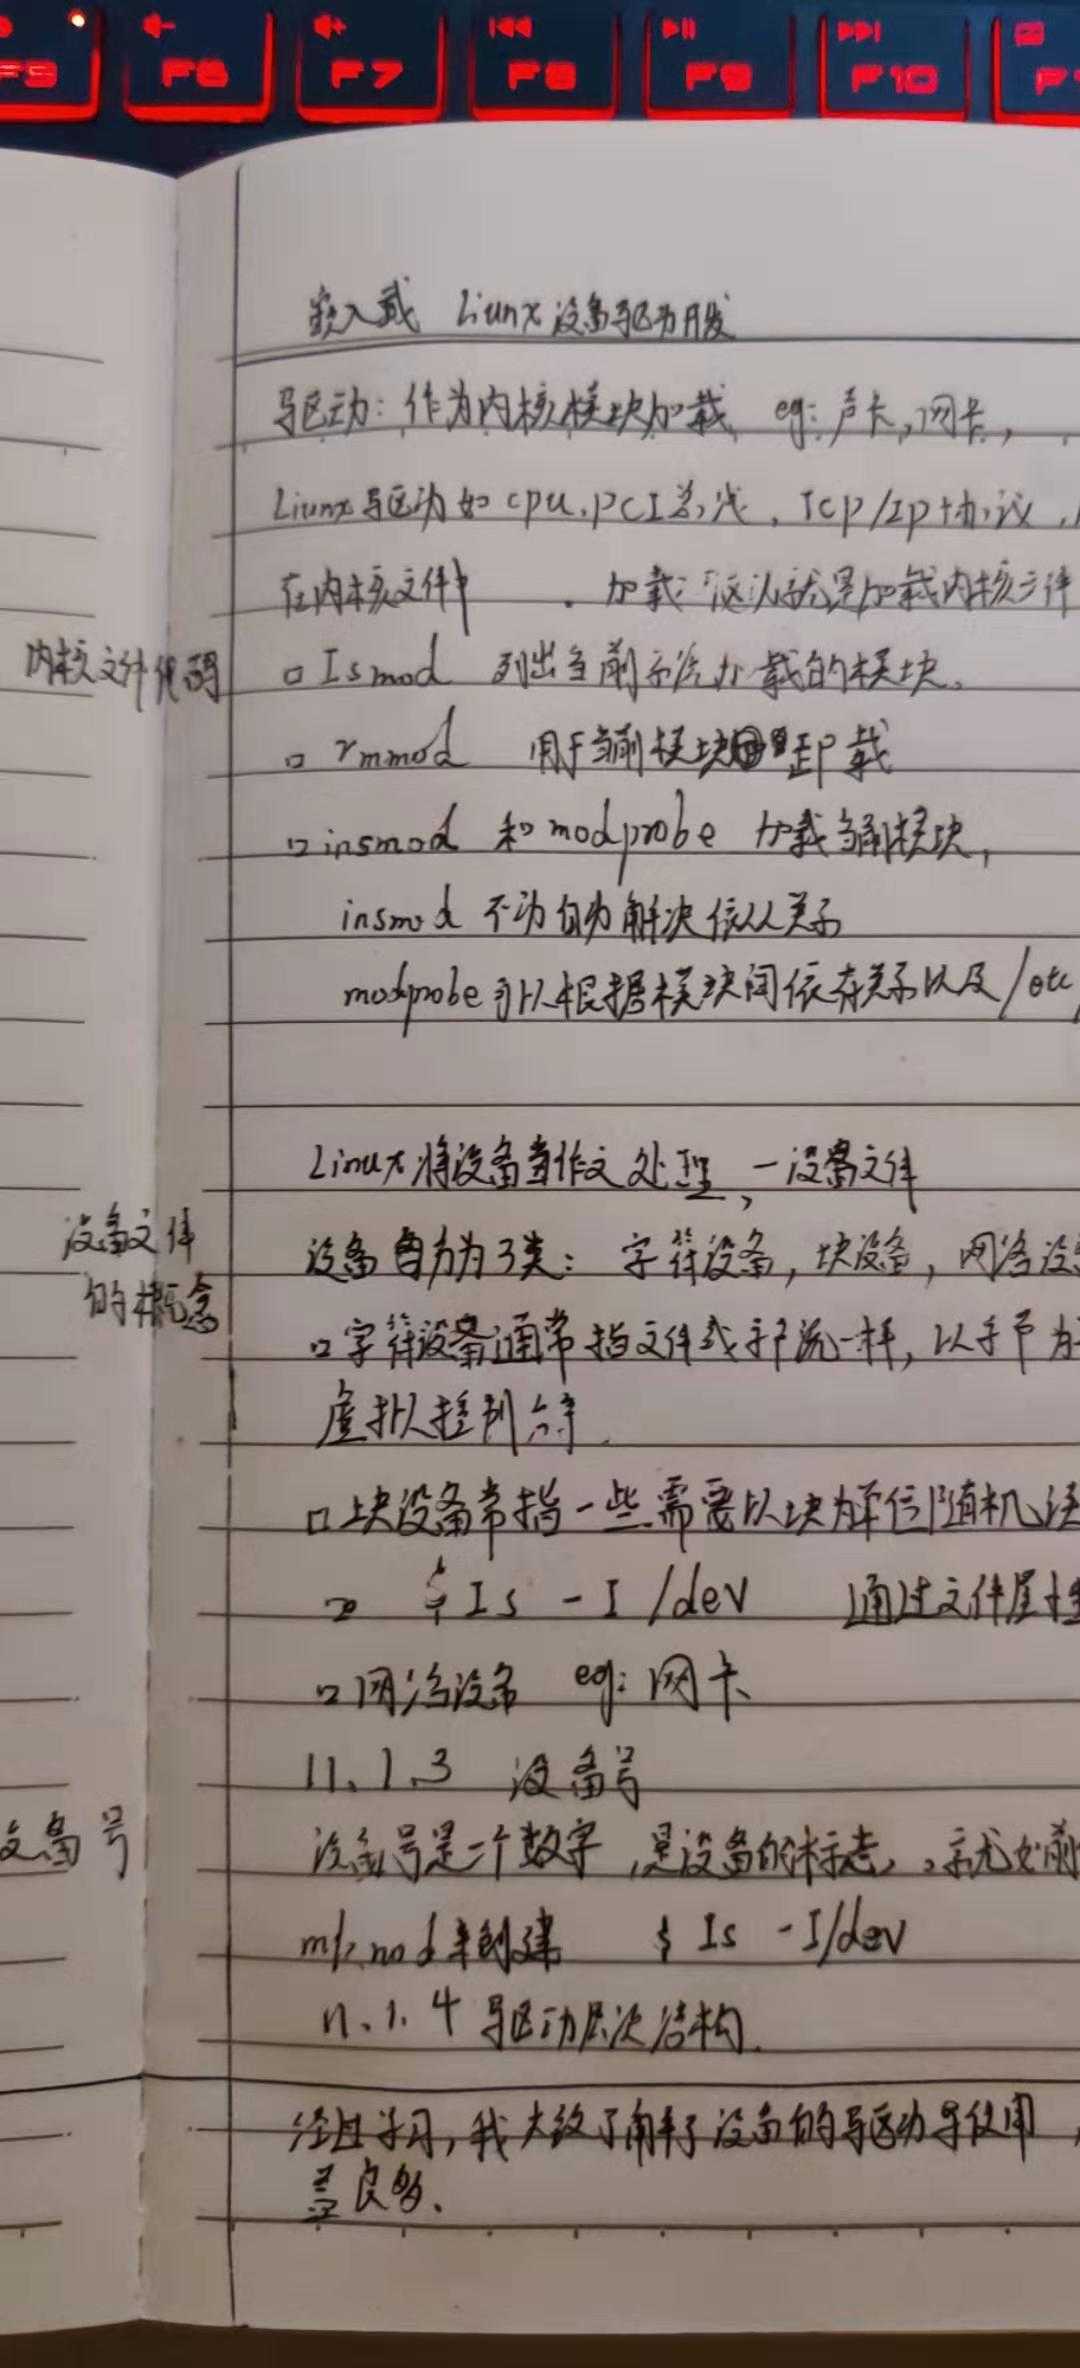 F6 F7 F8 F9 F10
嵌入式 Liunx 设备驱动开发
驱动：作为内核模块加载 eg：声卡，网卡，
Liunx驱动如 cpu，PCI总线，Tcp/Ip协议，
在内核文件中 加载：默认就是加载内核文件
内核文件代码
□ Ismod 列出当前系统加载的模块。
□ rmmod 用于当前模块卸载
□ insmod 和 modprobe 加载当前模块，
insmod 不为自动解决依从关系
modprobe可以根据模块间依存关系以及/etc/
Linux将设备当作文处理，一设备文件
设备文件
的概念
设备自分为3类：字符设备，块设备，网络设备
□字符设备通常指文件或字节流一样，以字节为
虚拟控制台等
□块设备常指一些需要以块为单位随机读
$ Is -I /dev 通过文件属性
□网络设备 eg：网卡
11.1.3 设备号
设备号
设备号是一个数字，是设备的标志，就如前
mknod来创建 $ Is -I/dev
11.1.4 驱动层次结构
经过学习，我大致了解了设备的驱动与使用，
益良多。